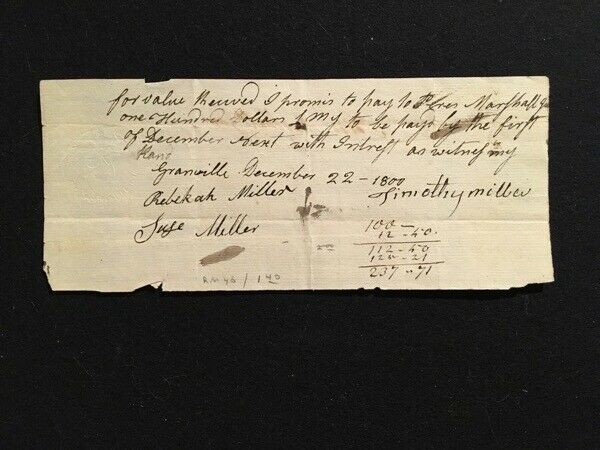 for value Received I promis to pay to Peres Marshall
one Hundred Dollars to be payd by the first
of December Next with Intrest as witness my
Hand
Granville December 22 - 1800
Rebekah Miller Timothy miller
Miller
100 -
12 - 50
112 - 50
125 - 21
237 - 71